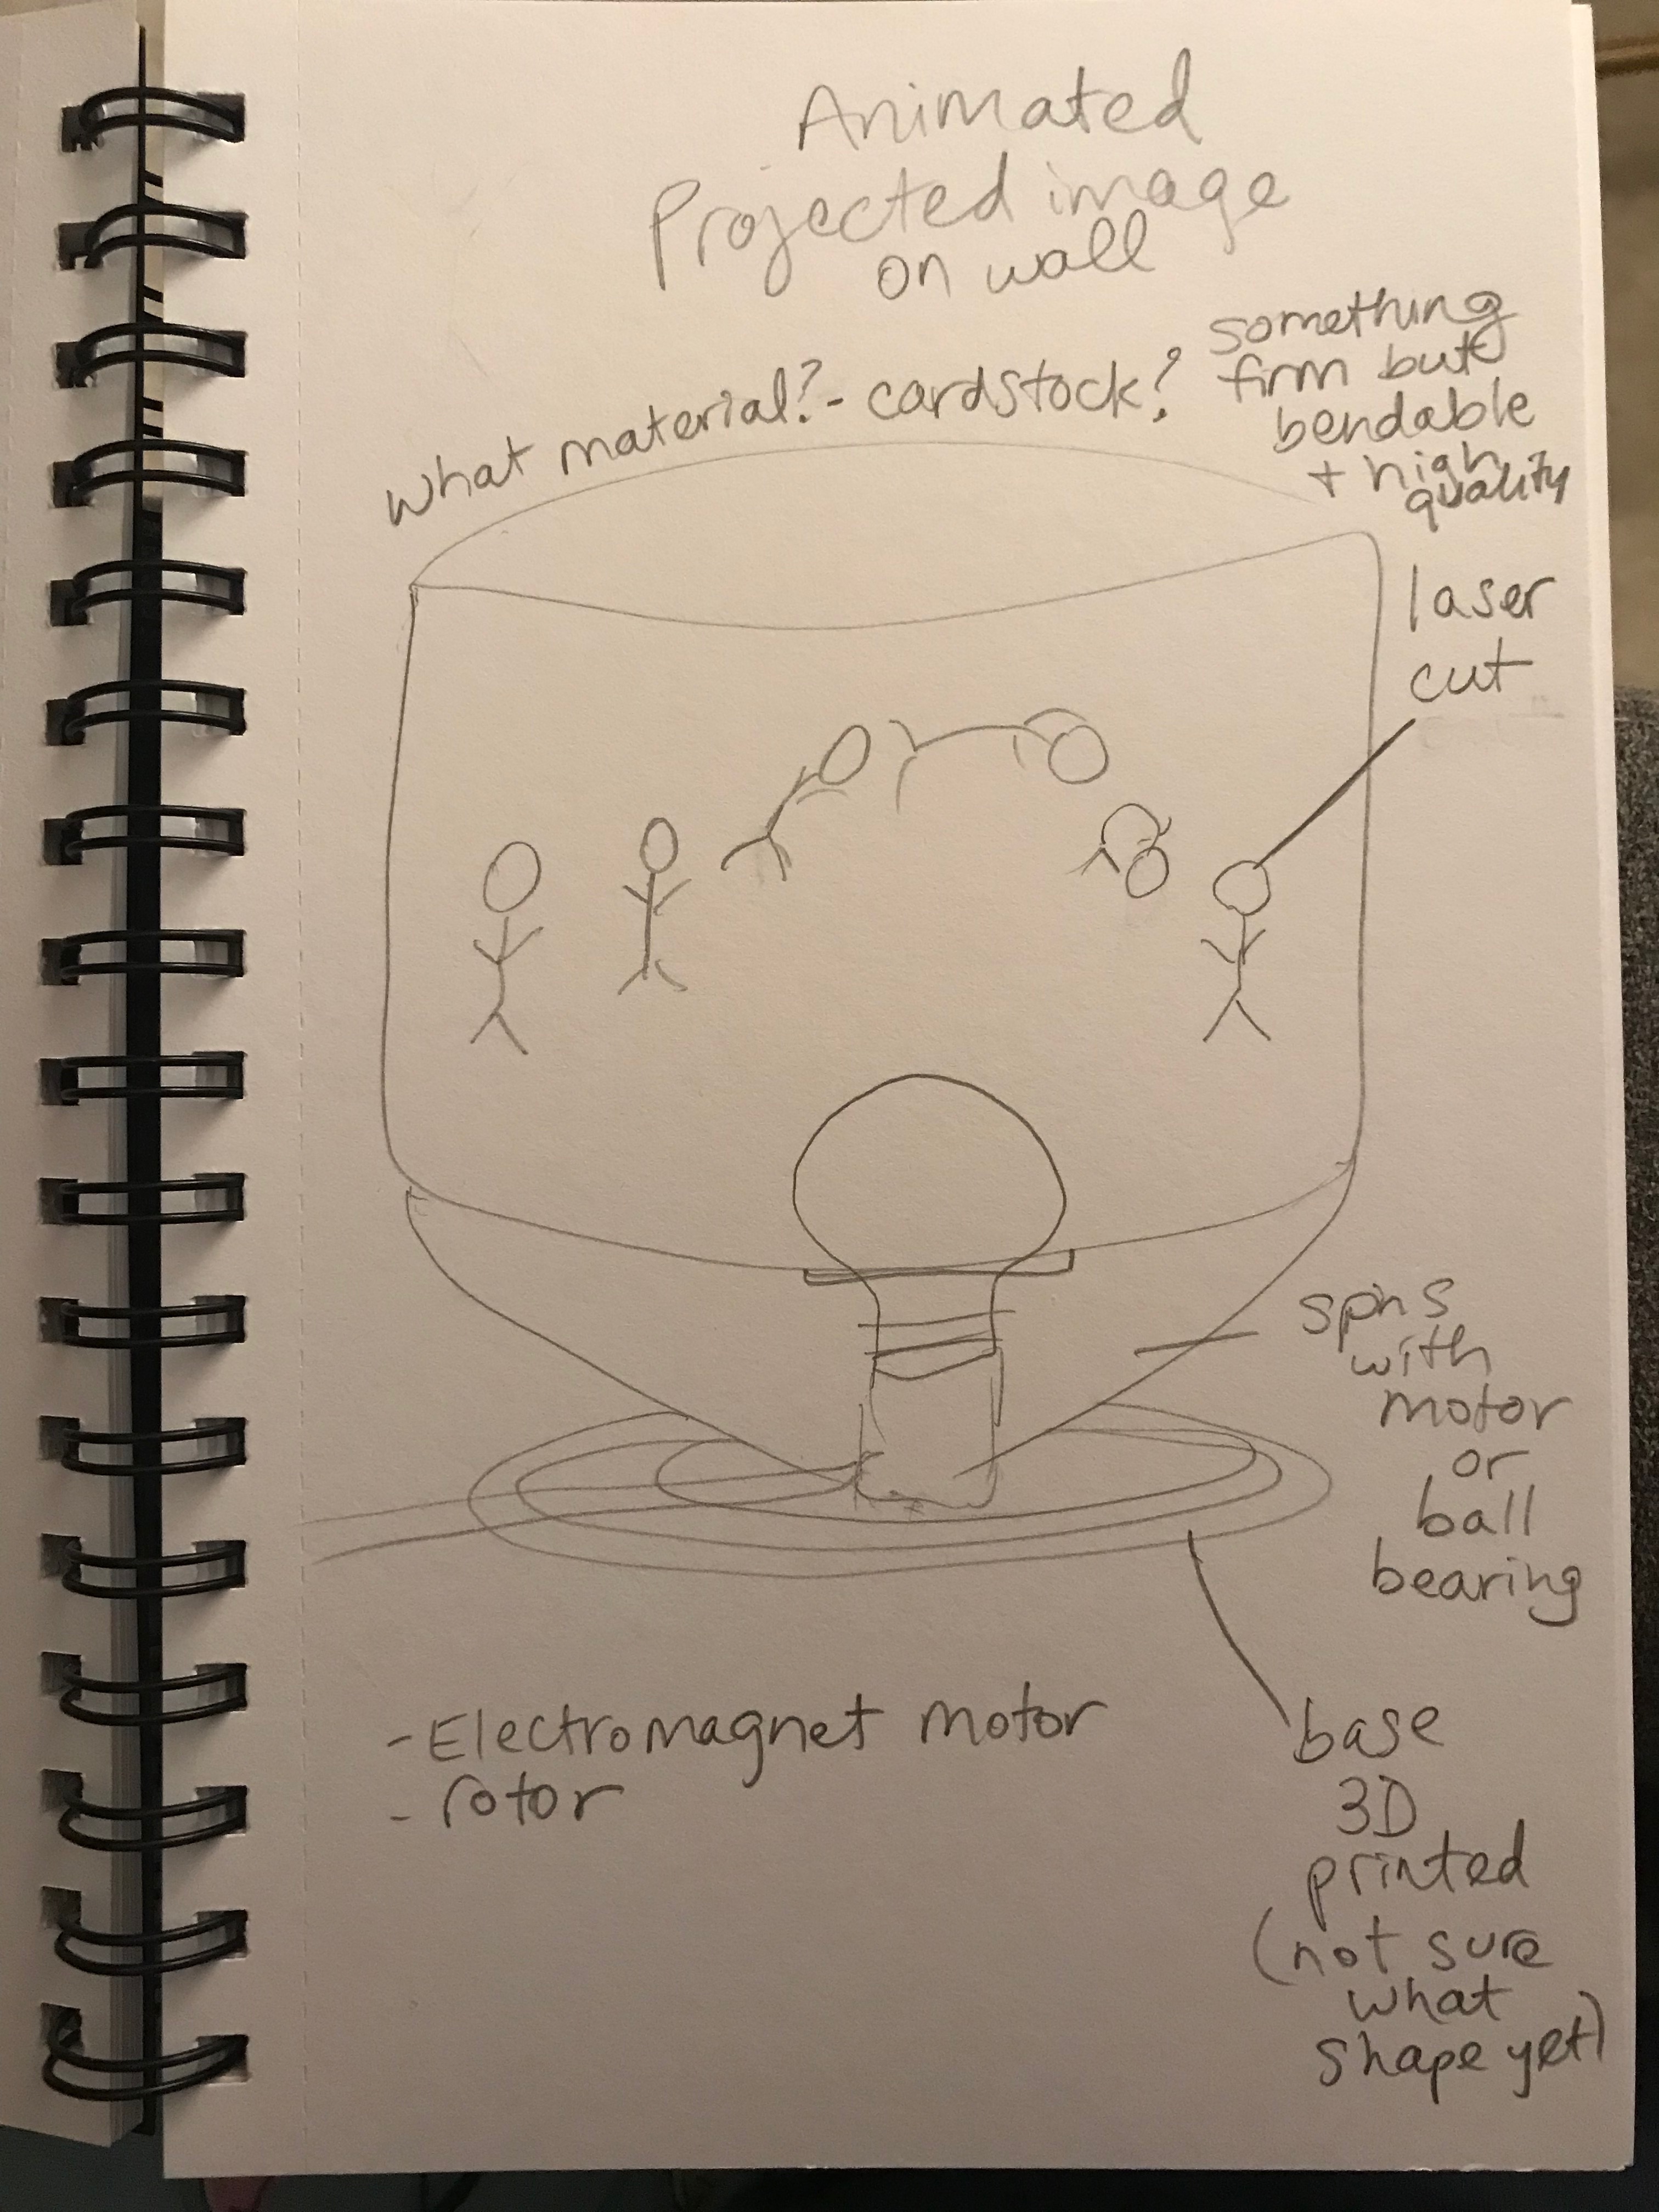 Animated
Projected image
on wall
What material? - cardstock?
something
firm but
bendable
+ high
quality
laser
cut
spins
with
motor
or
ball
bearing
- Electromagnet motor
- rotor
base
3D
printed
(not sure
what
shape yet)